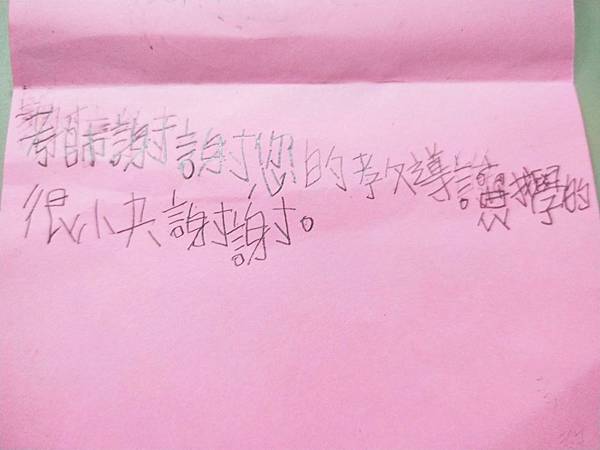 老師謝謝您的教導讓我學的
很小夬謝謝。